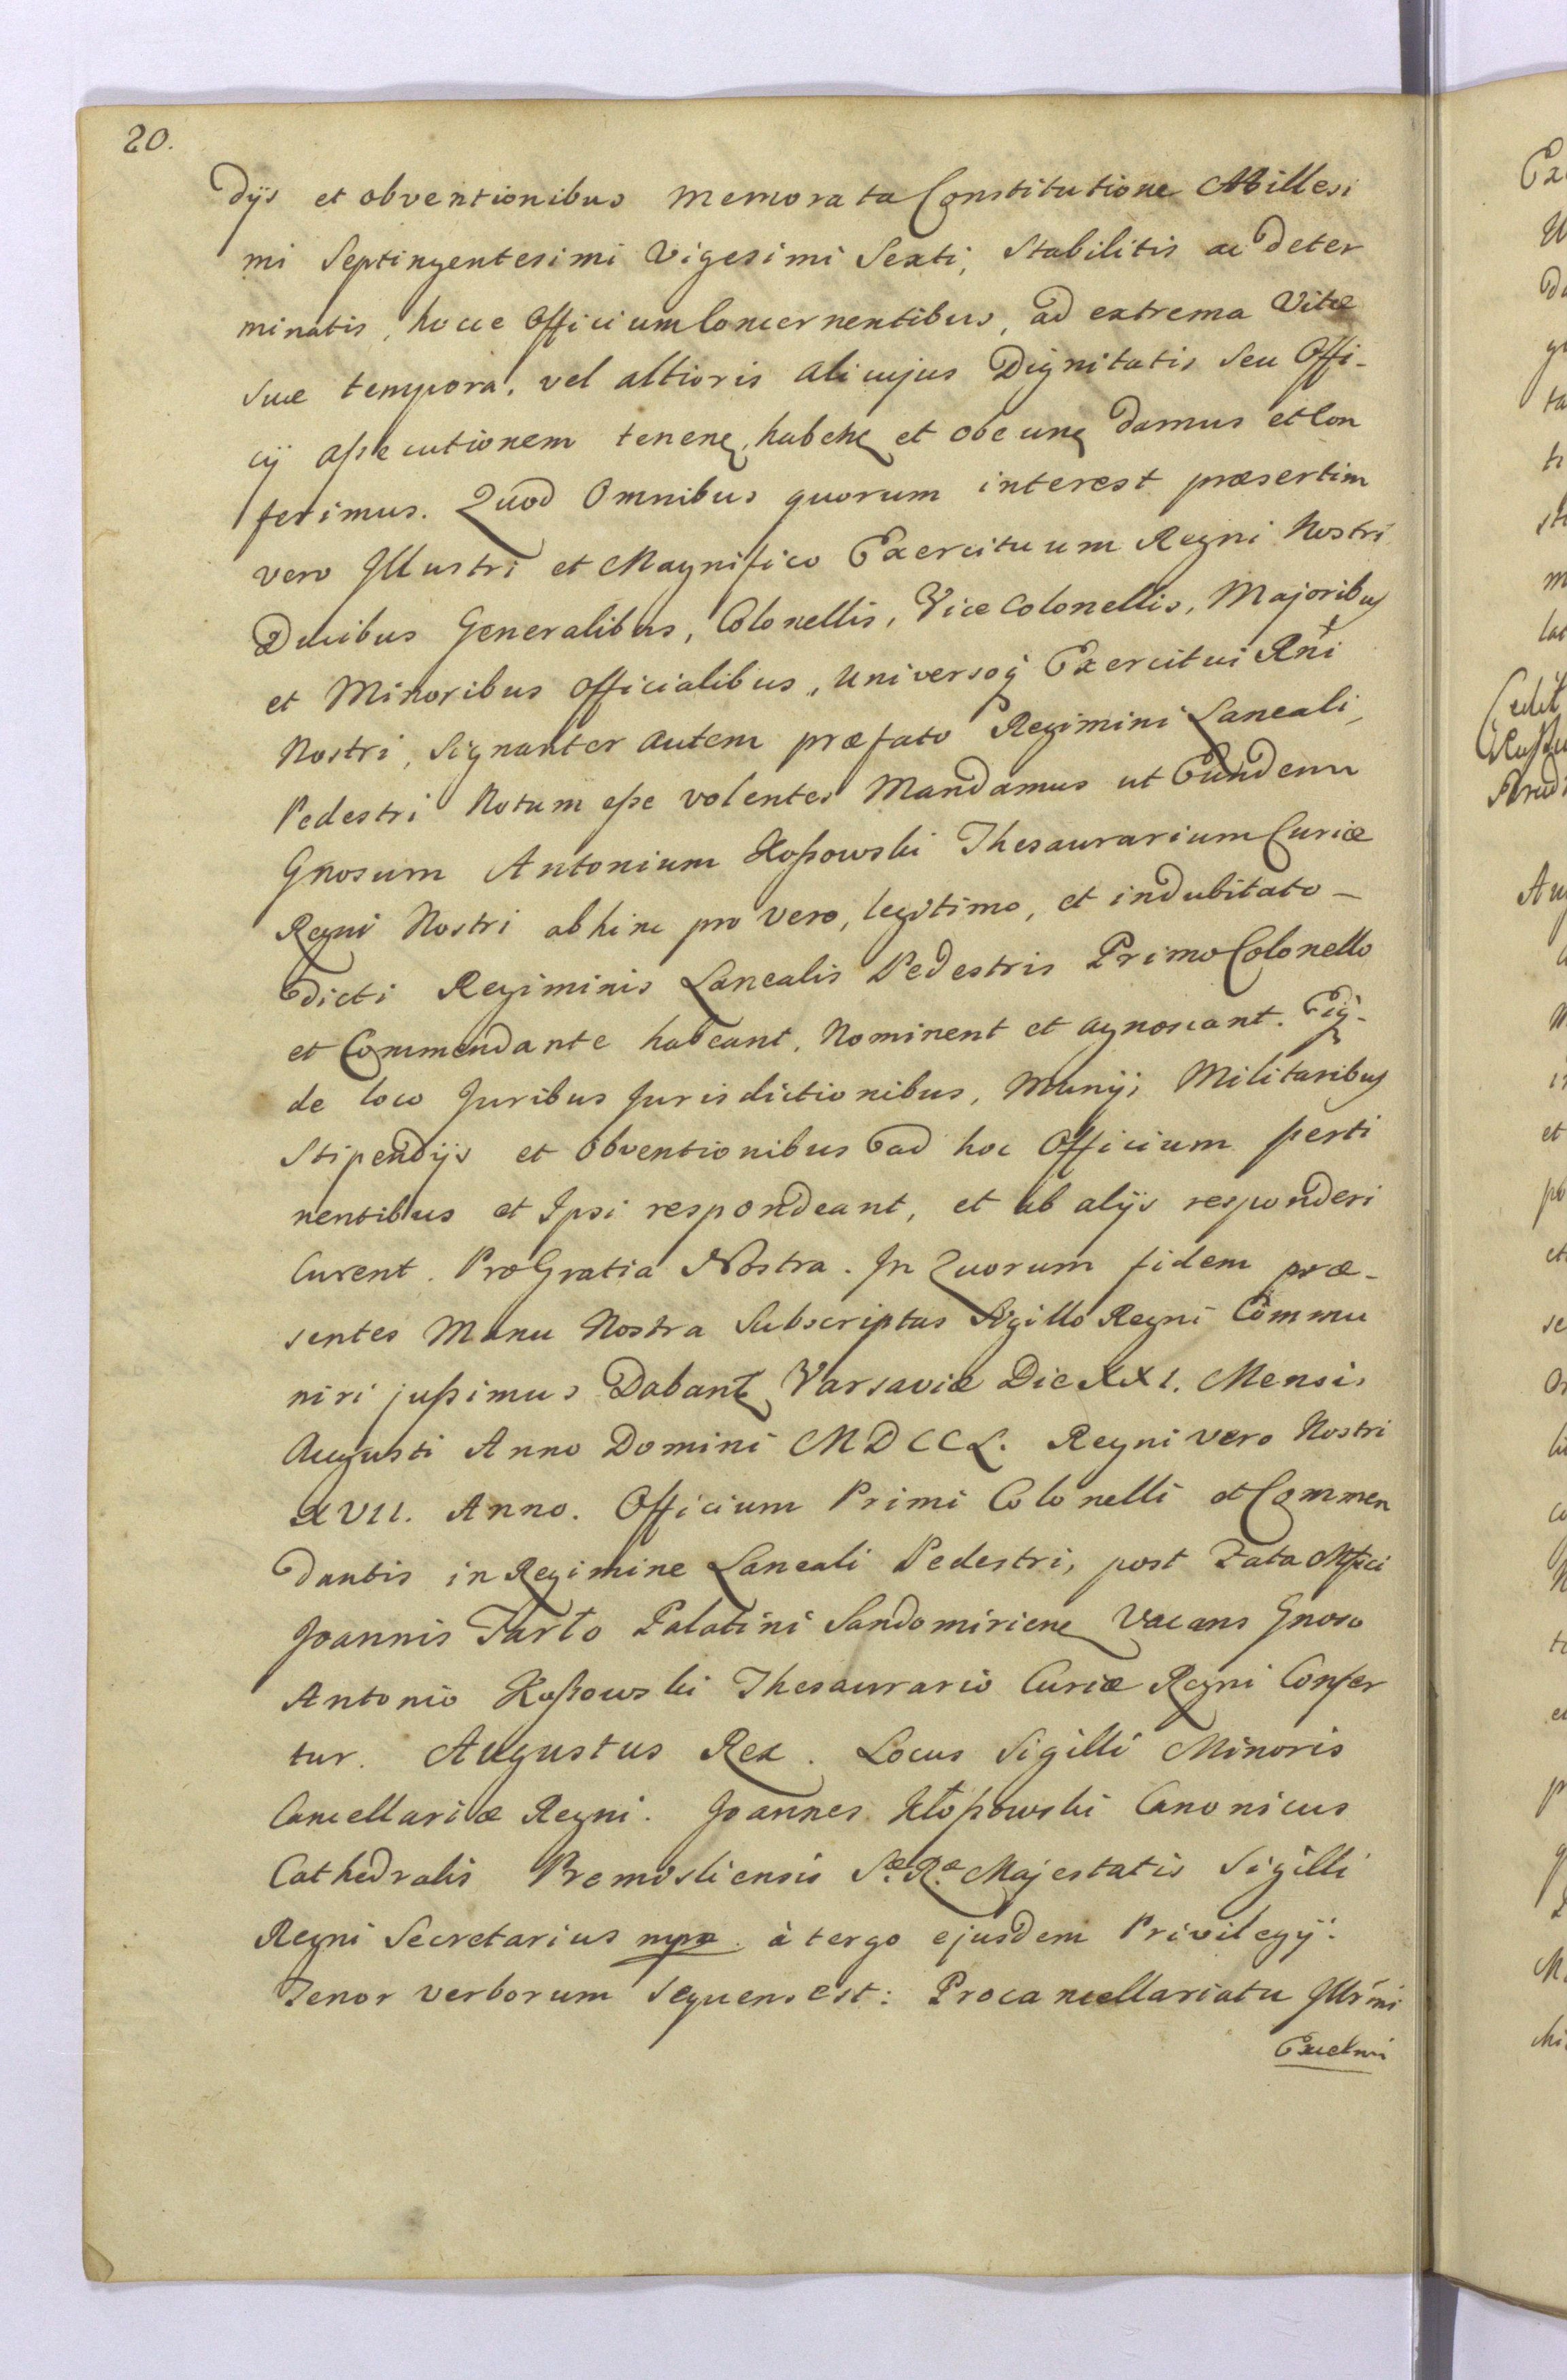 20.
dijs et obventionibus memorata Constitutione Millesi
mi Septingentesimi Vigesimi Sexti, Stabilitis ac deter
minatis, hocce Officium Concernentibus, ad extrema Vitæ
suæ tempora, vel altioris alicujus Dignitatis seu Offi-
cij assecutionem tenenḍ, habenḍ et obeunḍ damus et Con
ferimus. Quod Omnibus quorum interest præsertim
vero Illustri et Magnifico Exercituum Regni Nostri
Ducibus Generalibus, Colonellis, Vice Colonellis, Majoribus
et Minoribus Officialibus, Universoq́ Exercitui Rñi
Nostri, Signanter autem præfato Regimini Laneali
Pedestri Notum esse volentes Mandamus ut Eundem
Gnosum Antonium Kossowski Thesaurarium Curiæ
Regni Nostri abhinc pro vero, legitimo, et indubitato –
dicti Regiminis Lanealis Pedestris Primo Colonello
et Commendante habeant, Nominent et agnoscant. Eiq́-
de loco Juribus Jurisdictionibus, Munijs Militaribus
Stipendijs et Obventionibus ad hoc Officium perti
nentibus et Ipsi respondeant, et ab alijs responderi
Curent. Pro Gratia Nostra. In Quorum fidem præ-
sentes Manu Nostra Subscriptas Sigillo Regni Commu
niri jussimus Dabant Varsaviæ Die XXI. Mensis
Augusti Anno Domini MDCCL. Regni vero Nostri
XVII. Anno. Officium Primi Colonelli et Commen
dantis in Regimine Laneali Pedestri, post Fata Mfici
Joannis Tarło Palatini Sandomirienṣ Vacans Gnoso
Antonio Kossowski Thesaurario Curiæ Regni Confer
tur. Augustus Rex. Locus Sigilli Minoris
Cancellariæ Regni. Joannes Kłossowski Canonicus
Cathedralis Premisliensis Sæ. Ræ. Majestatis Sigilli
Regni Secretarius mpa. à tergo ejusdem Privilegij.
Tenor verborum sequens est: Procancellariatu Illrm̃i
Excelmi